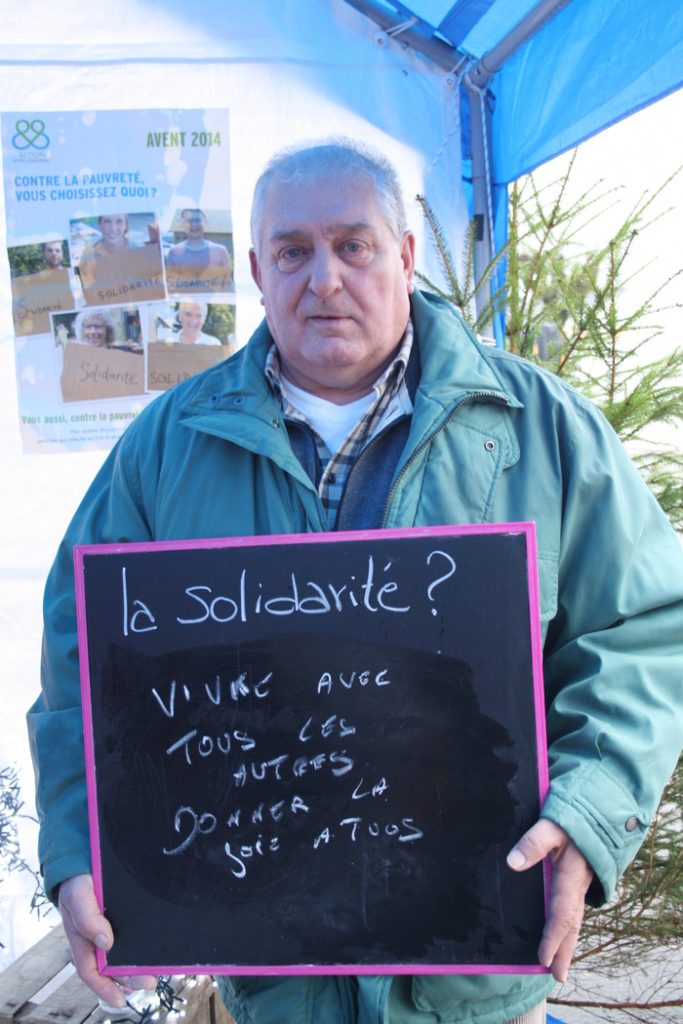 AVENT 2014
ACTION
VIVRE ENSEMBLE
CONTRE LA PAUVRETÉ,
VOUS CHOISISSEZ QUOI ?
SOLIDARITÉ
Solidarité
Vous aussi, contre la pauvre
la solidarité ?
VIVRE AVEC
TOUS LES
AUTRES
DONNER LA
joie A TOUS